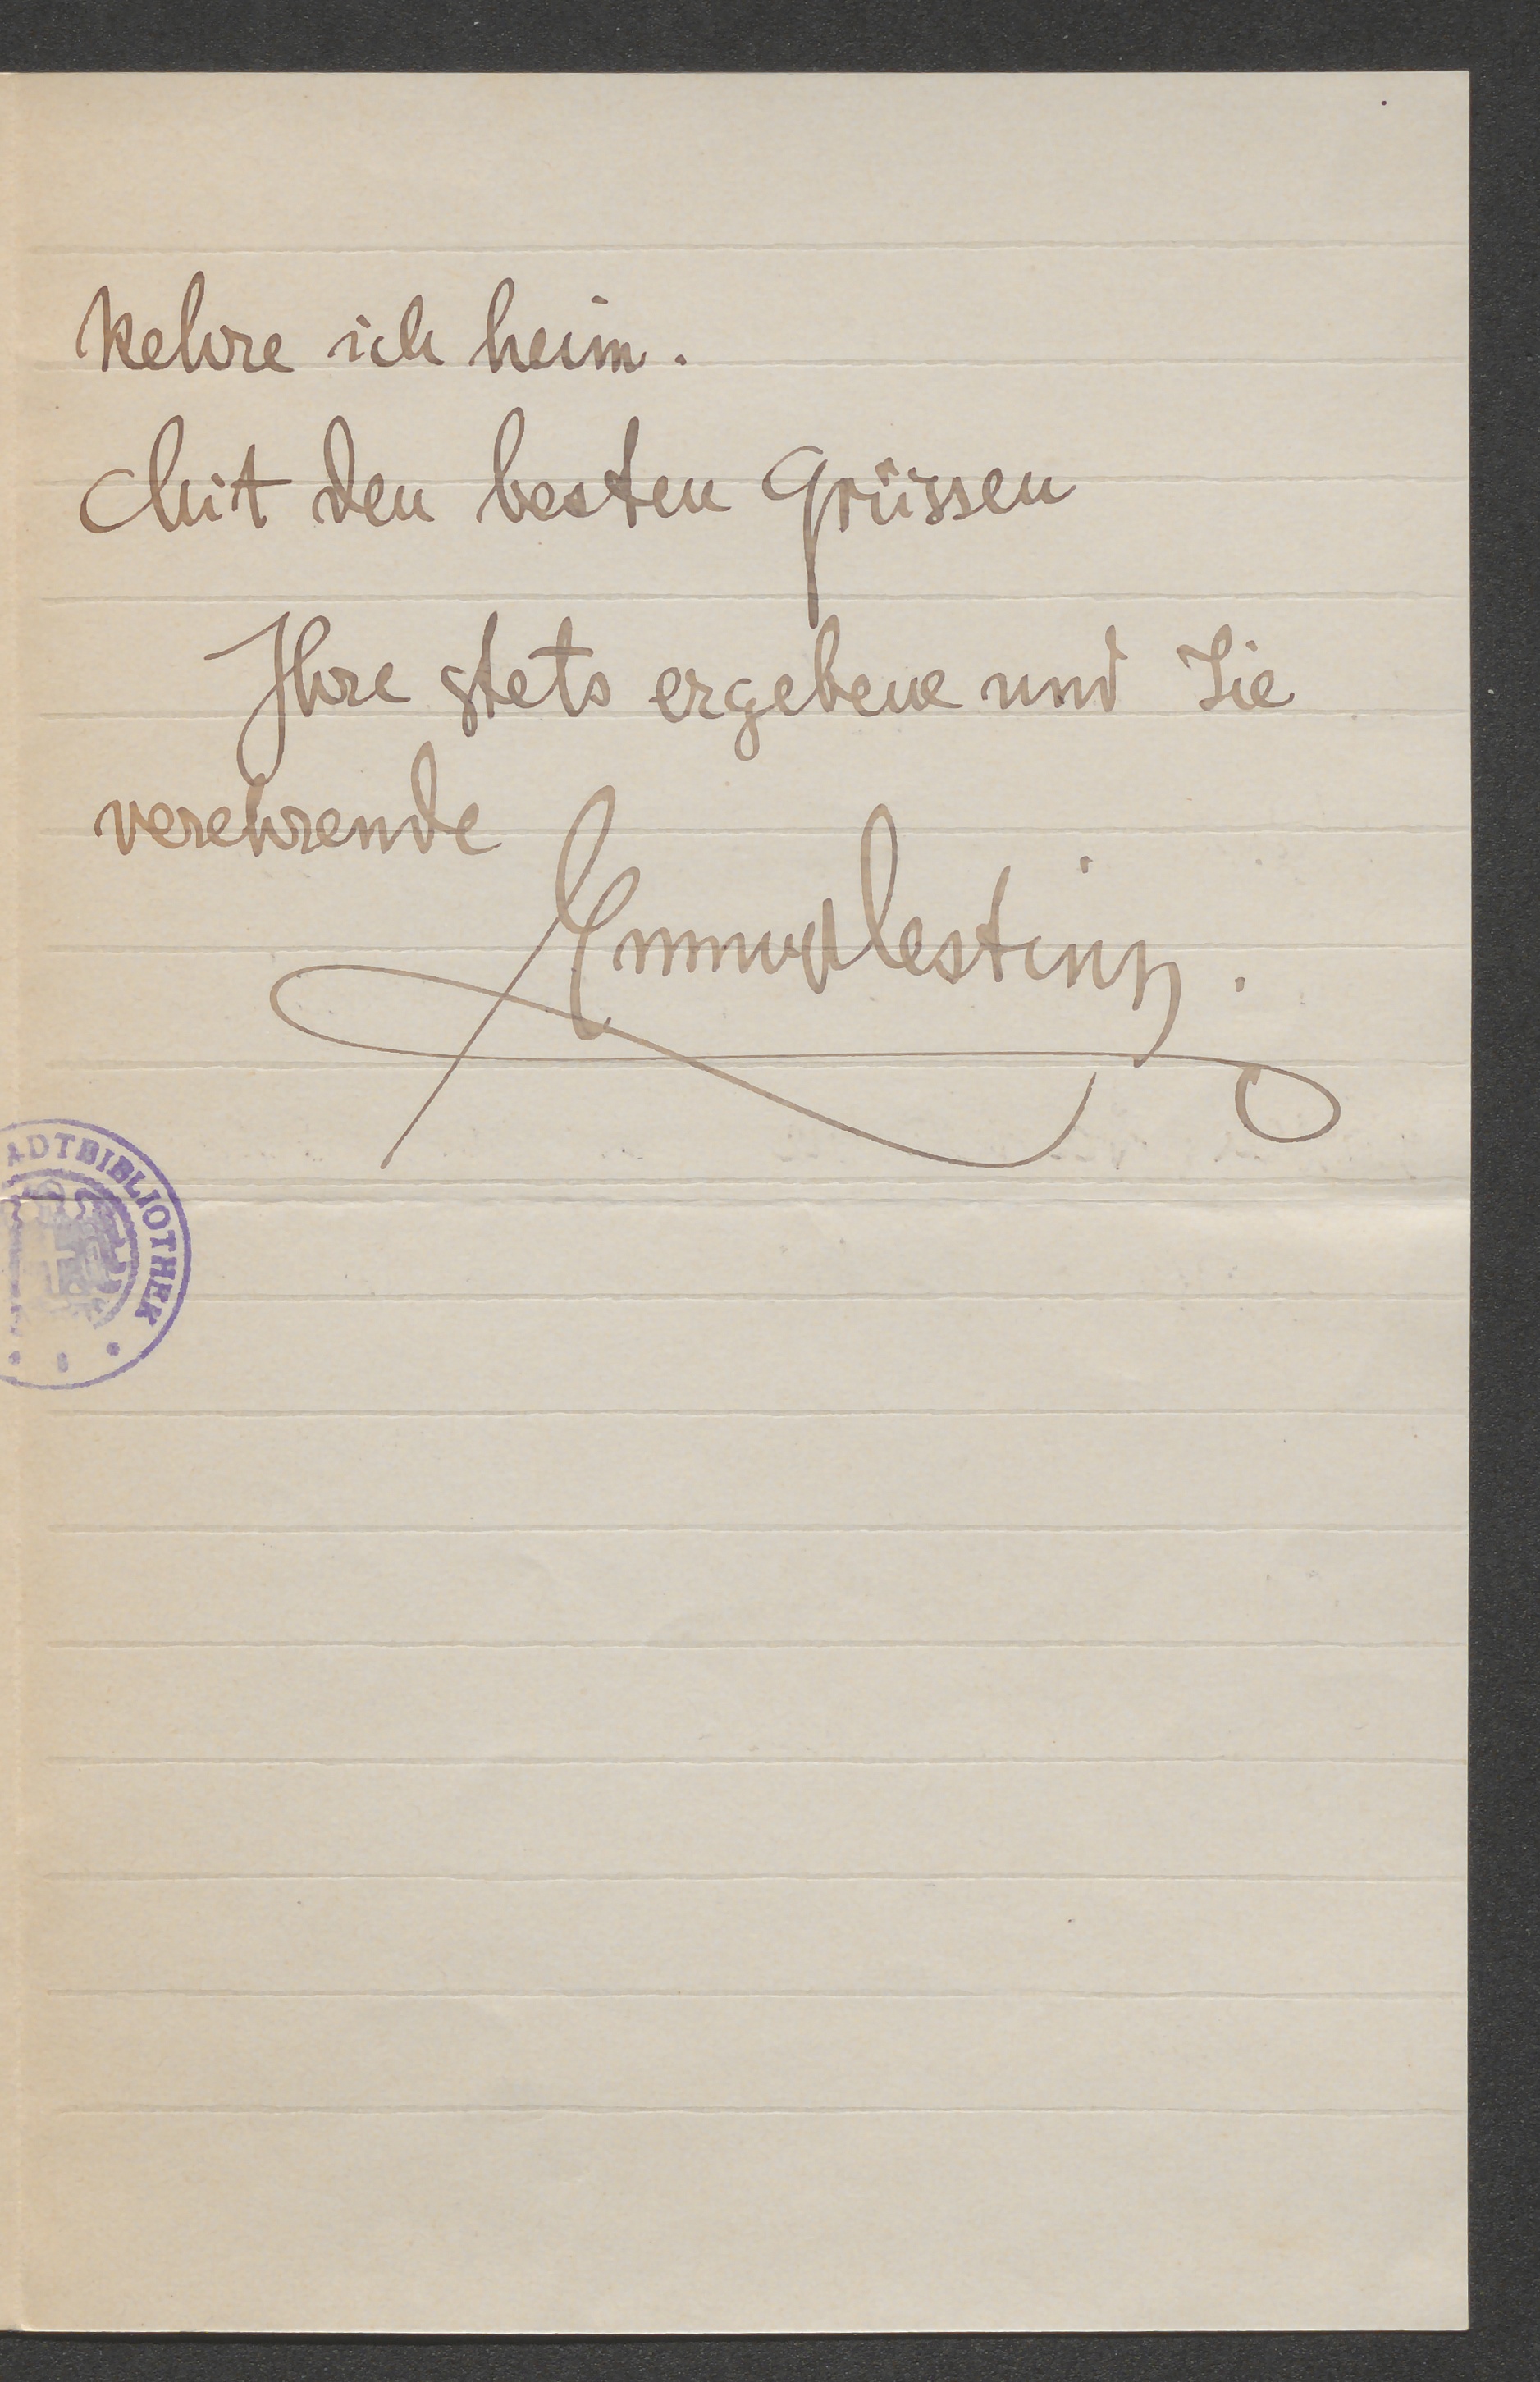 kehre ich heim.
Mit den besten Grüssen
Ihre stets ergebene und Sie
verehrende
EmmyDestinn.
ADTBIBLIOTHEK